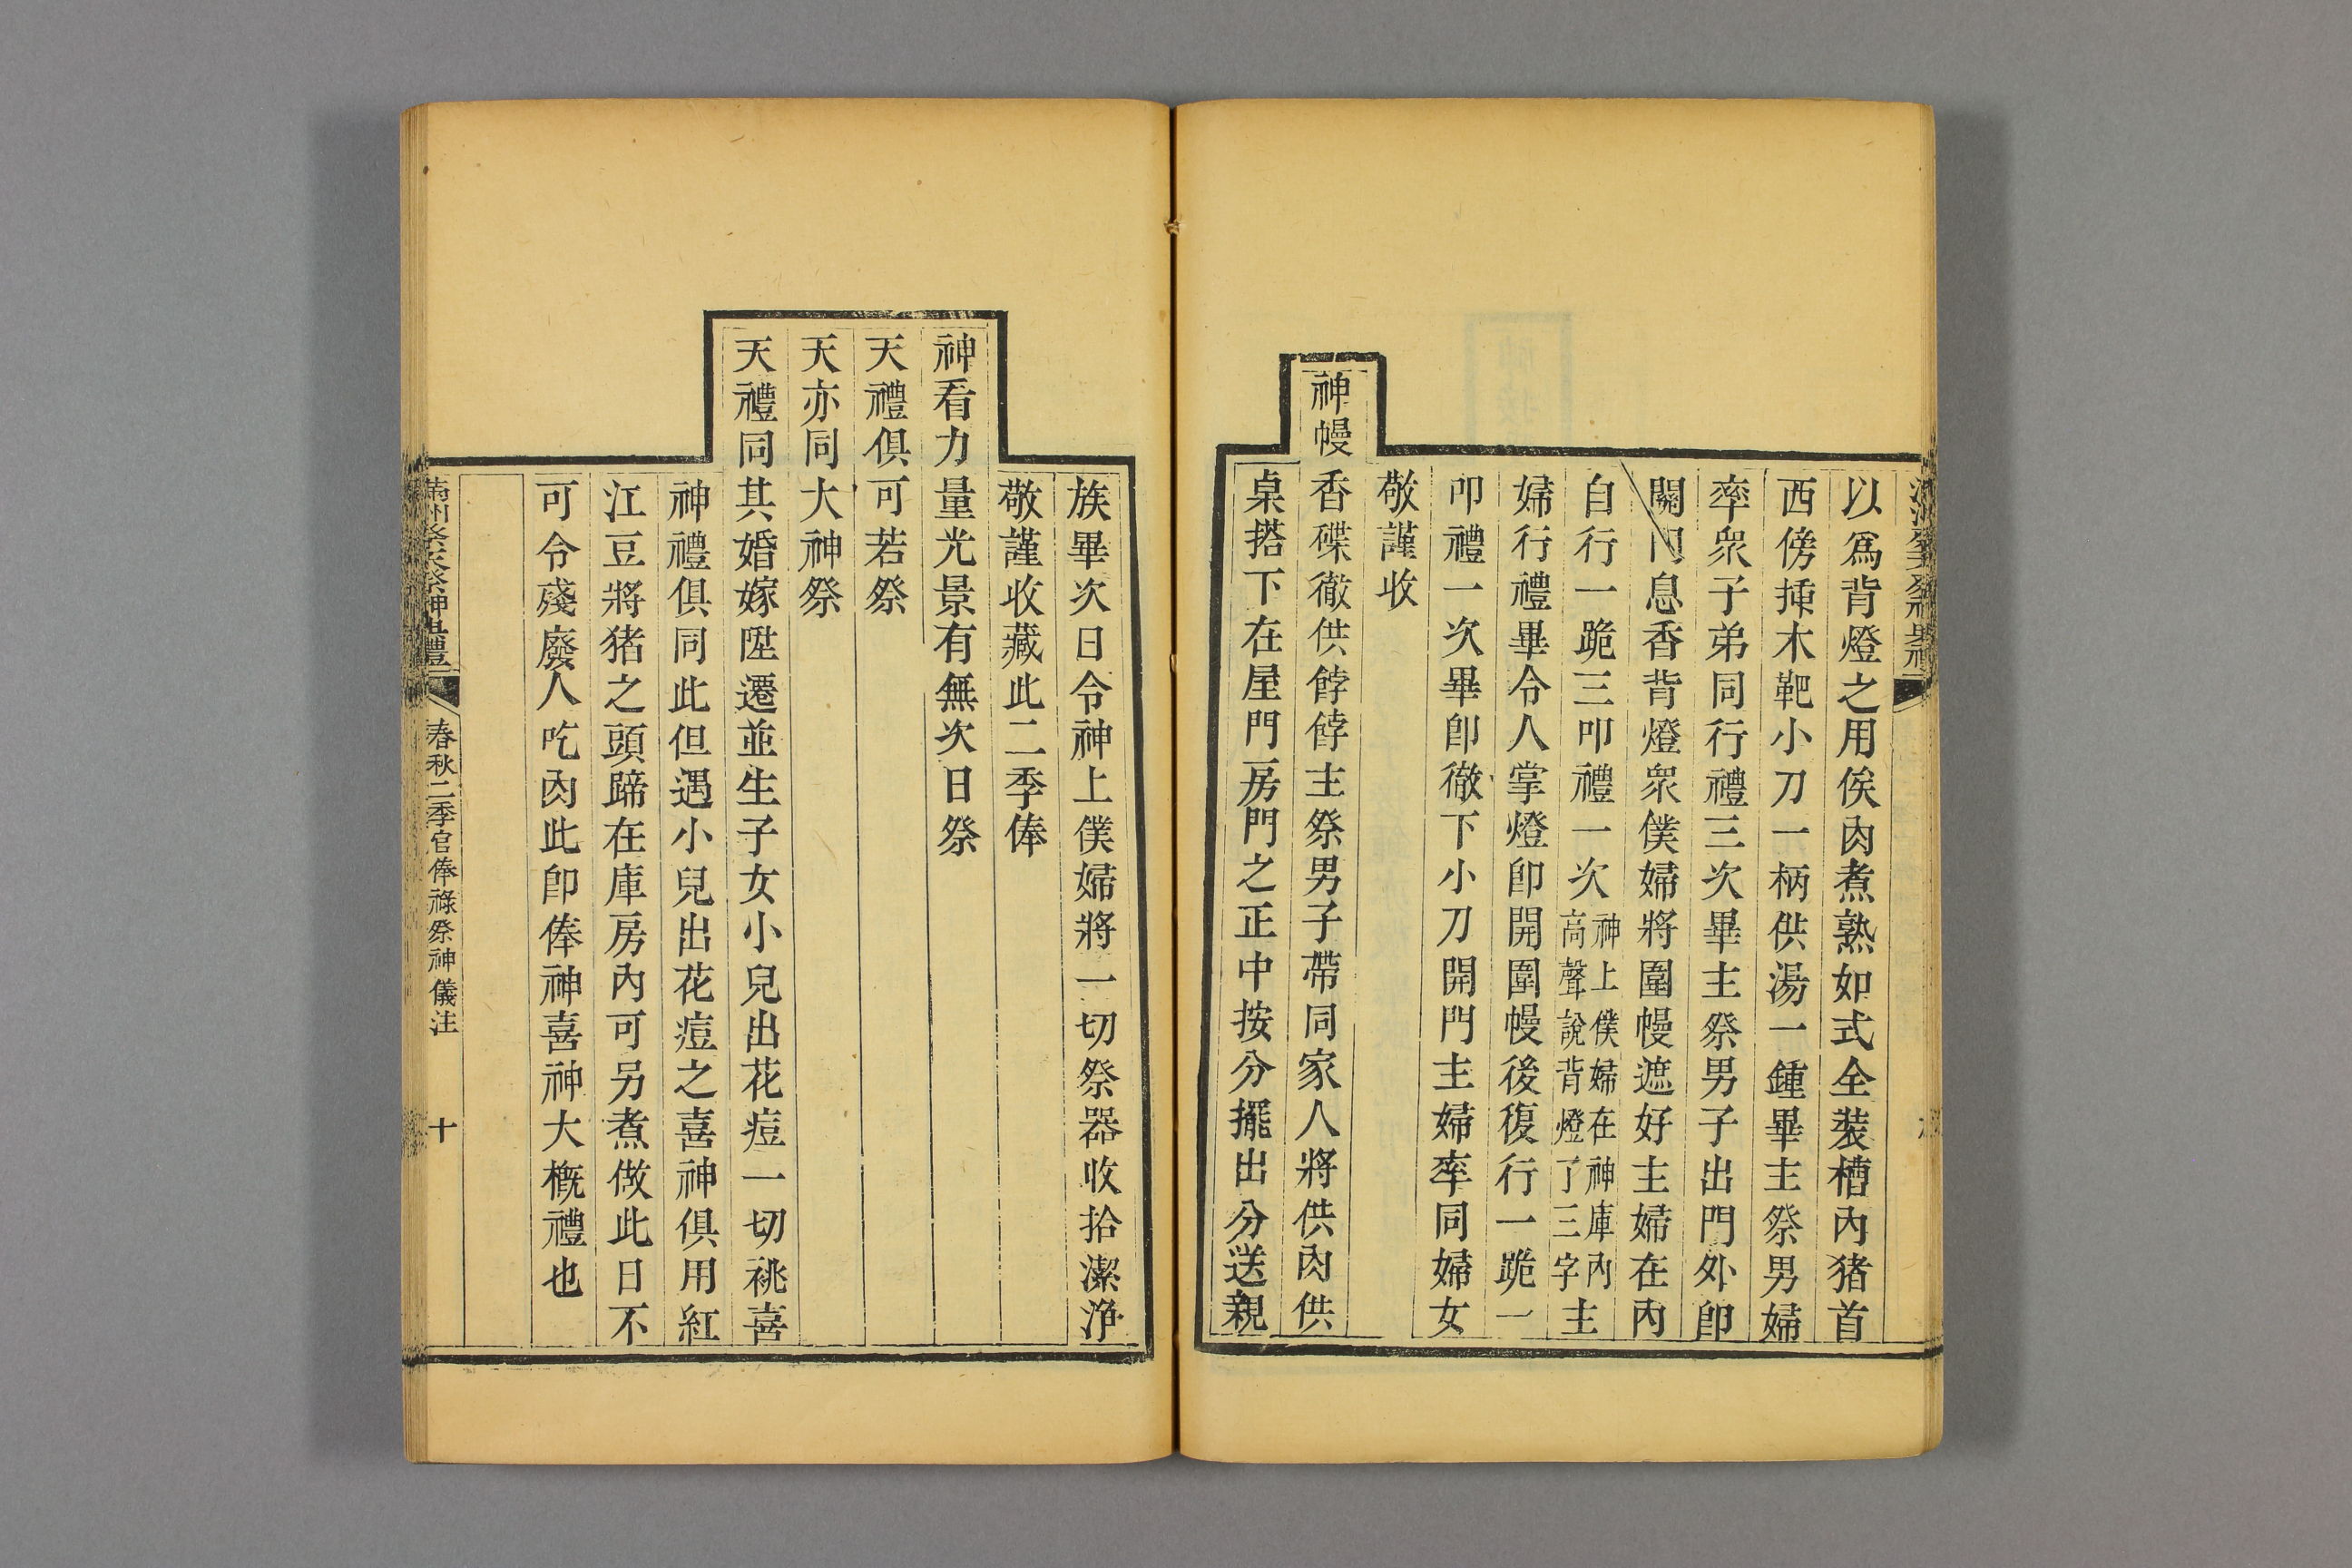 以爲背燈之用俟肉煮熟如式全裝槽內猪首
西傍揷木靶小刀一柄供湯一鍾畢主祭男婦
率衆子弟同行禮三次畢主祭男子出門外卽
關門息香背燈衆僕婦將圍幔遮好主婦在內
自行一跪三叩禮一次神上僕婦在神庫內高聲說背燈了三字主
婦行禮畢令人掌燈卽開圍幔後復行一跪一
叩禮一次畢卽徹下小刀開門主婦率同婦女
敬謹收
神幔香碟徹供餑餑主祭男子帶同家人將供肉供
桌搭下在屋門房門之正中按分擺出分送親
族畢次日令神上僕婦將一切祭器收拾潔淨
敬謹收藏此二季俸
神看力量光景有無次日祭
天禮俱可若祭
天亦同大神祭
天禮同其婚嫁陞遷並生子女小兒出花痘一切祧喜
神禮俱同此但遇小兒出花痘之喜神俱用紅
江豆將猪之頭蹄在庫房內可另煮做此日不
可令殘廢人吃肉此卽俸神喜神大概禮也
滿州祭天祭神典禮
春秋二季官俸祿祭神儀注
十